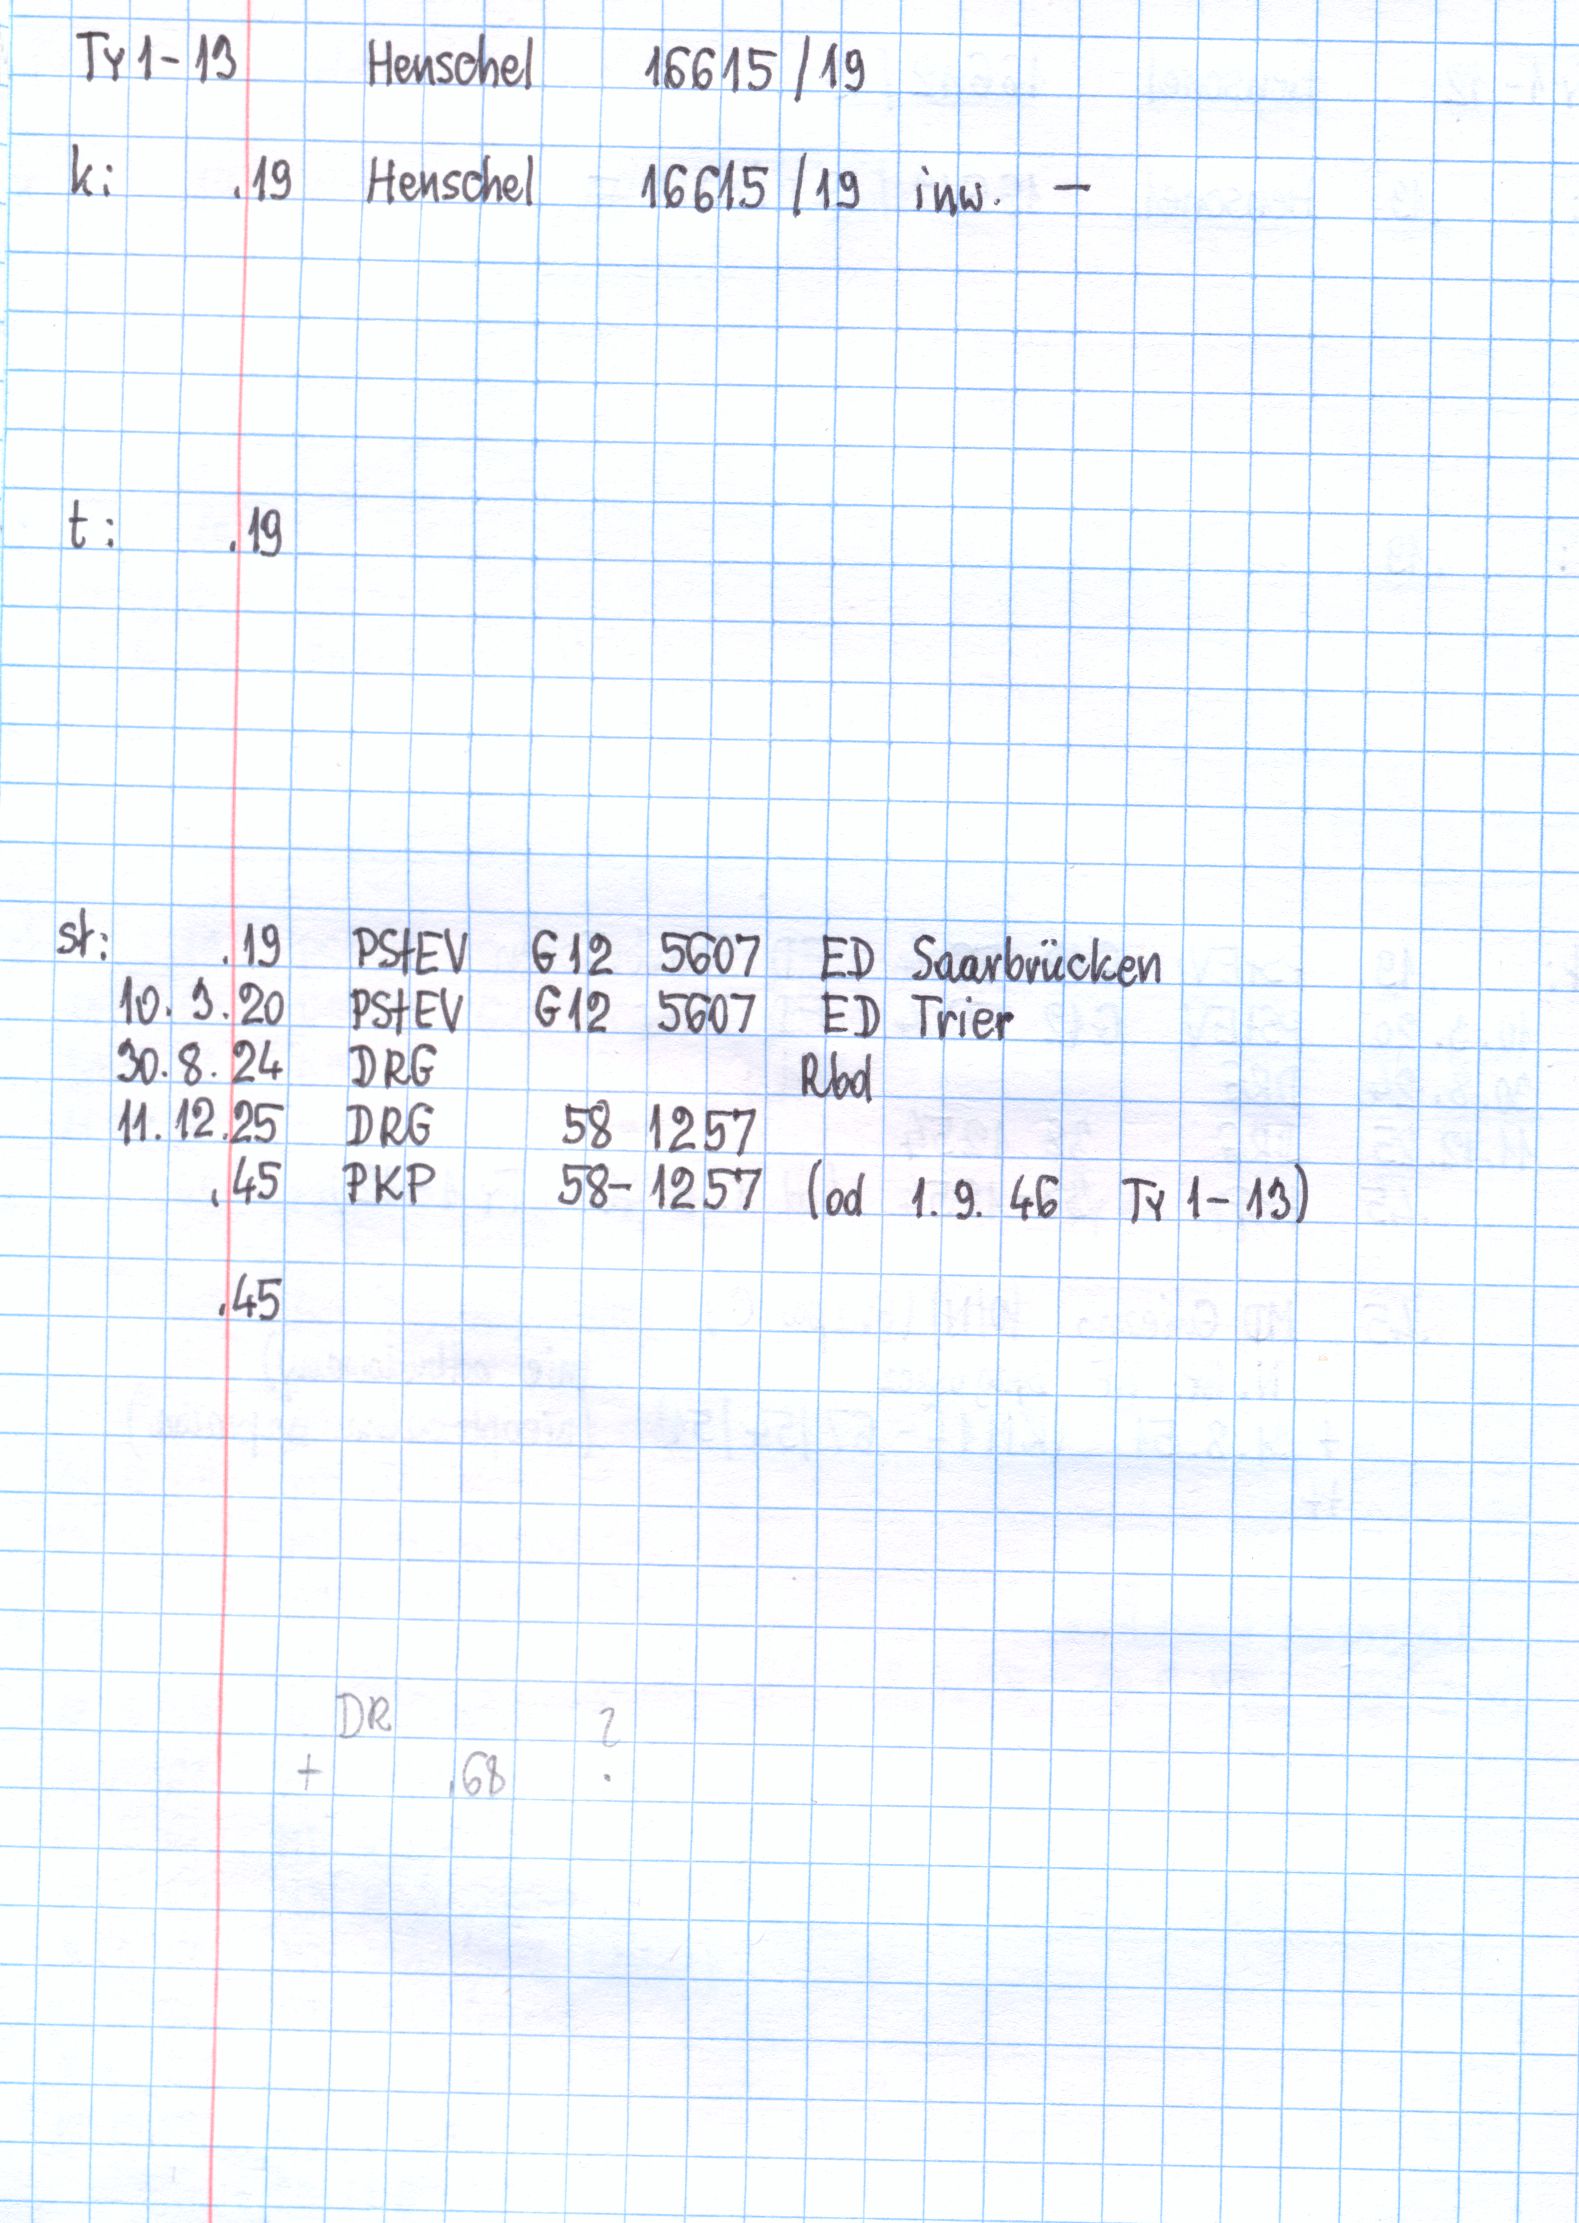 Ty 1-13 Henschel 16615/19
k: .19 Henschel 16615/19 inw. —
t: .19
st: .19 PStEV G12 5607 ED Saarbrücken
10.3.20 PStEV G12 5607 ED Trier
30.8.24 DRG Rbd
11.12.25 DRG 58 1257
.45 PKP 58-1257 (od 1.9.46 Ty 1-13)
.45
DR ?
+ .68